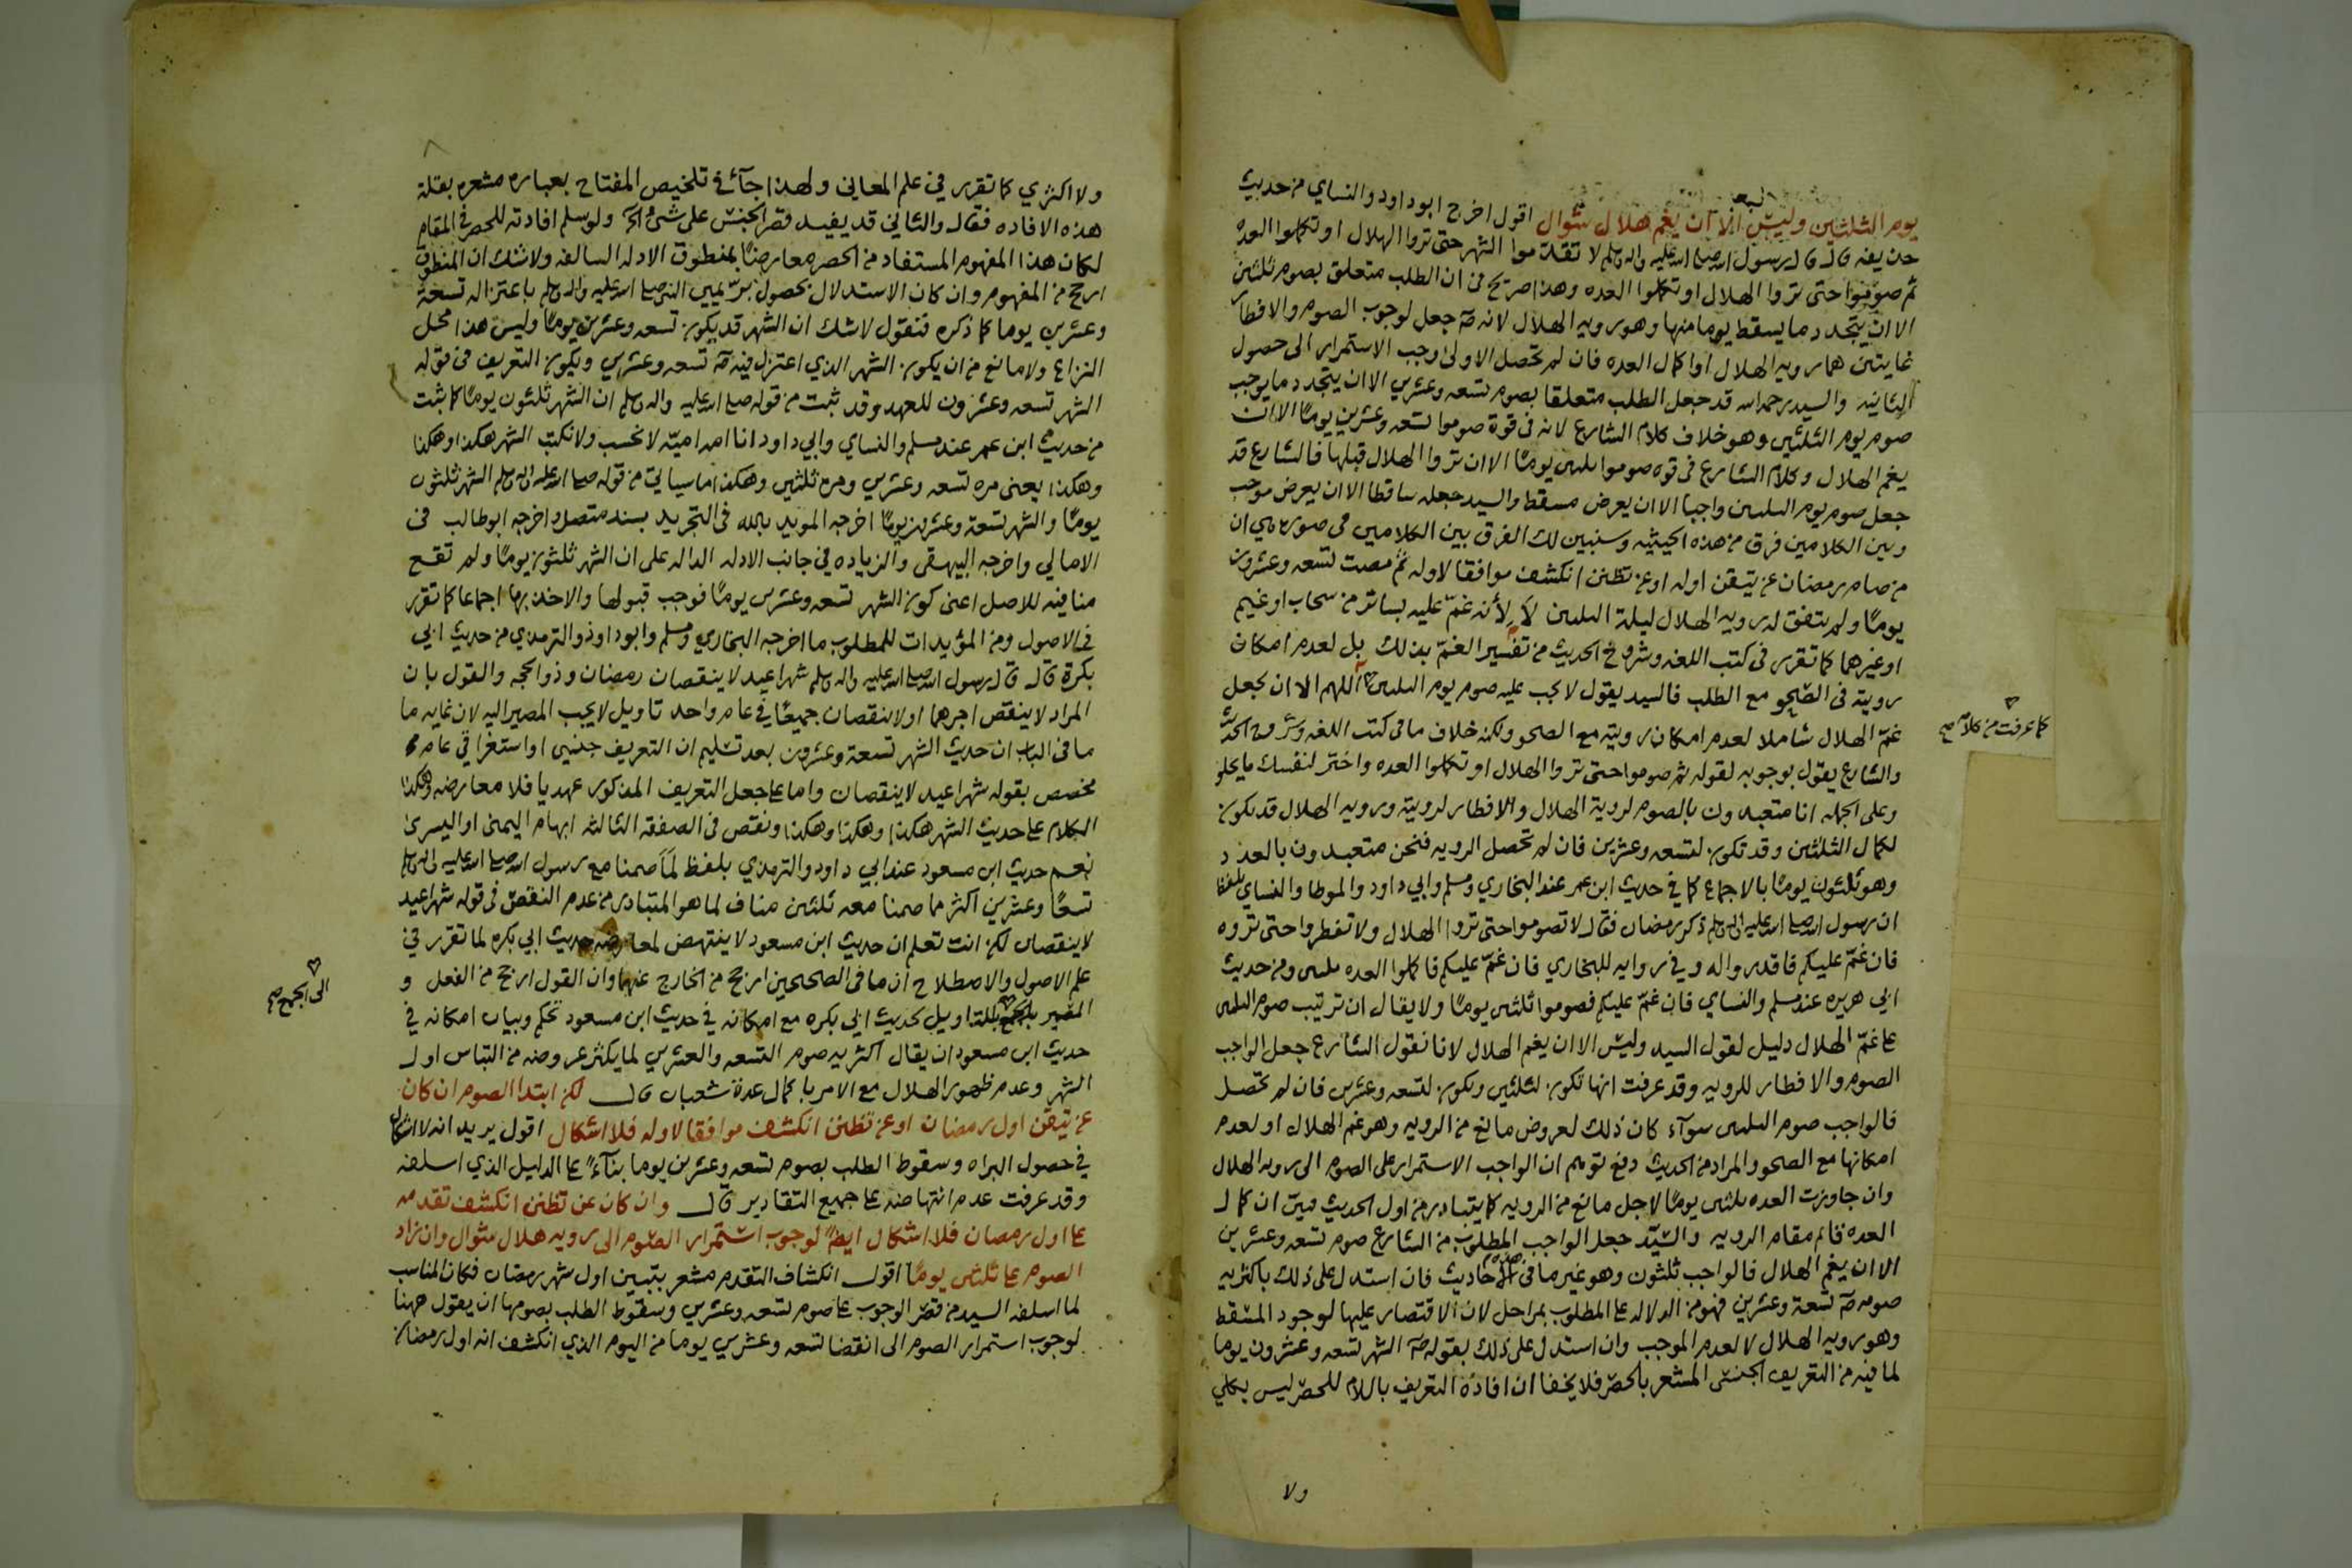 يوم الثلثين وليس الا ان يغم هلال شوال اقول اخرج ابو داود والنساي من حديث
حذيفه قال قال رسول الله صلى الله عليه واله وسلم لا تقدموا الشهر حتى تروا الهلال او تكملوا العده
ثم صوموا حتى تروا الهلال او تكملوا العده وهذا صريح في ان الطلب متعلق بصوم ثلثين
الا ان يتجدد ما يسقط يوما منها وهو رويه الهلال لانه صلى جعل لوجوب الصوم والافطار
غايتين هما رويه الهلال او اكمال العده فان لم تحصل الاولى وجب الاستمرار الى حصول
الثانيه والسيد رحمه الله قد جعل الطلب متعلقا بصوم تسعه وعشرين الا ان يتجدد ما يوجب
صوم يوم الثلثين وهو خلاف كلام الشارع لانه في قوة صوموا تسعه وعشرين يوما الا ان
يغم الهلال وكلام الشارع في قوه صوموا ثلثين يوما الا ان تروا الهلال قبلها فالشارع قد
جعل صوم يوم الثلثين واجبا الا ان يعرض مسقط والسيد جعله ساقطا الا ان يعرض موجب
وبين الكلامين فرق من هذه الحيثيه وسنبين لك الفرق بين الكلامين في صوره هي ان
من صام رمضان عن تيقن اوله او عن تظنن انكشف موافقا لاوله ثم مضت تسعه وعشرون
يوما ولم يتفق له رويه الهلال ليلة الثلثين لا لأنه غم عليه بساتر من سحاب او غيم
او غيرهما كما تقرر في كتب اللغه وشروح الحديث من تفسير الغم بذلك بل لعدم امكان
رويته في الصحو مع الطلب فالسيد يقول لا يجب عليه صوم يوم الثلثين اللهم الا ان يجعل
غم الهلال شاملا لعدم امكان رويته مع الصحو ولكنه خلاف ما في كتب اللغه وشروح الحديث
كما عرفت من كلام صح
والشارع يقول بوجوبه لقوله ثم صوموا حتى تروا الهلال او تكملوا العده واختر لنفسك ما يحلو
وعلى الجمله انا متعبدون بالصوم لروية الهلال والافطار لرويته ورويه الهلال قد تكون
لكمال الثلثين وقد تكون لتسعه وعشرين فان لم تحصل الرويه فنحن متعبدون بالعدد
وهو ثلثون يوما بالاجماع كما في حديث ابن عمر عند البخاري ومسلم وابي داود والموطا والنساي بلفظ
ان رسول الله صلى الله عليه واله وسلم ذكر رمضان فقال لا تصوموا حتى تروا الهلال ولا تفطروا حتى تروه
فان غم عليكم فاقدروا له وفي روايه للبخاري فان غم عليكم فاكملوا العده ثلثين ومن حديث
ابي هريره عند مسلم والنساي فان غم عليكم فصوموا ثلثين يوما ولا يقال ان ترتيب صوم الثلثين
على غم الهلال دليل لقول السيد وليس الا ان يغم الهلال لانا نقول الشارع جعل الواجب
الصوم والافطار للرويه وقد عرفت انها تكون لثلثين وتكون لتسعه وعشرين فان لم تحصل
فالواجب صوم الثلثين سوآء كان ذلك لعروض مانع من الرويه وهو غم الهلال او لعدم
امكانها مع الصحو والمراد من الحديث دفع توهم ان الواجب الاستمرار على الصوم الى رويه الهلال
وان جاوزت العده ثلثين يوما لاجل مانع من الرويه كما يتبادر من اول الحديث فبين ان كمال
العده قائم مقام الرويه والسيد جعل الواجب المطلوب من الشارع صوم تسعه وعشرين
الا ان يغم الهلال فالواجب ثلثون وهو غير ما في هذه الاحاديث فان استدل على ذلك باكثريه
صومه صلى تسعة وعشرين فهو من الدلاله على المطلوب بمراحل لان الاقتصار عليها لوجود المسقط
وهو رويه الهلال لا لعدم الموجب وان استدل على ذلك بقوله صلى الشهر تسعه وعشرون يوما
لما فيه من التعريف الجنسي المشعر بالحصر فلا يخفا ان افادة التعريف باللام للحصر ليس بكلي
ولا
ولا اكثري كما تقرر في علم المعاني ولهذا جآء في تلخيص المفتاح بعباره مشعره بقلة
هذه الافاده فقال والثاني قد يفيد قصر الجنس على شيء الخ ولو سلم افادته للحصر في المقام
لكان هذا المفهوم المستفاد من الحصر معارضا بمنطوق الادله السالفه ولا شك ان المنطوق
ارجح من المفهوم وان كان الاستدلال بحصول بر يمين النبي صلى الله عليه واله وسلم باعتزاله تسعة
وعشرين يوما كما ذكره فنقول لا شك ان الشهر قد يكون تسعه وعشرين يوما وليس هذا محل
النزاع ولا مانع من ان يكون الشهر الذي اعتزل فيه صلى تسعه وعشرين ويكون التعريف في قوله
الشهر تسعه وعشرون للعهد وقد ثبت من قوله صلى الله عليه واله وسلم ان الشهر ثلثون يوما كما ثبت
من حديث ابن عمر عند مسلم والنساي وابي داود انا امه اميه لا نحسب ولا نكتب الشهر هكذا وهكذا
وهكذا يعني مره تسعه وعشرين ومره ثلثين وهكذا ما سياتي من قوله صلى الله عليه واله وسلم الشهر ثلثون
يوما والشهر تسعة وعشرون يوما اخرجه المويد بالله في التجريد بسند متصل واخرجه ابو طالب في
الامالي واخرجه البيهقي والزياده في جانب الادله الداله على ان الشهر ثلثون يوما ولم تقع
منافيه للاصل اعني كون الشهر تسعه وعشرين يوما فوجب قبولها والاخذ بها اجماعا كما تقرر
في الاصول ومن المؤيدات للمطلوب ما اخرجه البخاري ومسلم وابو داود والترمذي من حديث ابي
بكرة قال قال رسول الله صلى الله عليه واله وسلم شهرا عيد لا ينقصان رمضان وذو الحجه والقول بان
المراد لا ينقص اجرهما او لا ينقصان جميعا في عام واحد تاويل لا يجب المصير اليه لان غايه ما
ما في الباب ان حديث الشهر تسعة وعشرون بعد تسليم ان التعريف جنسي او استغراقي عام
مخصص بقوله شهرا عيد لا ينقصان واما على جعل التعريف المذكور عهديا فلا معارضه وهكذا
الكلام على حديث الشهر هكذا وهكذا وهكذا ونقص في الصفقه الثالثه ابهام اليمنى او اليسرى
نعم حديث ابن مسعود عند ابي داود والترمذي بلفظ لما صمنا مع رسول الله صلى الله عليه واله وسلم
تسعا وعشرين اكثر مما صمنا معه ثلثين مناف لما هو المتبادر من عدم النقص في قوله شهرا عيد
لا ينقصان لكن انت تعلم ان حديث ابن مسعود لا ينتهض لمعارضه حديث ابي بكره لما تقرر في
علم الاصول والاصطلاح ان ما في الصحيحين ارجح من الخارج عنهما وان القول ارجح من الفعل و
المصير الى الجمع بالتاويل لحديث ابي بكره مع امكانه في حديث ابن مسعود تحكم وبيان امكانه في
الى الجمع صح
حديث ابن مسعود ان يقال اكثريه صوم التسعه والعشرين لما يكثر عروضه من التباس اول
الشهر وعدم ظهور الهلال مع الامر باكمال عدة شعبان قال لكن ابتدا الصوم ان كان
عن تيقن اول رمضان او عن تظنن انكشف موافقا لاوله فلا اشكال اقول يريد انه لا اشكال
في حصول البراه وسقوط الطلب بصوم تسعه وعشرين يوما بنآء على الدليل الذي اسلفه
وقد عرفت عدم انتهاضه على جميع التقادير قال وان كان عن تظنن انكشف تقدمه
على اول رمضان فلا اشكال ايضا لوجوب استمرار الصوم الى رويه هلال شوال وان زاد
الصوم على ثلثين يوما اقول انكشاف التقدم مشعر بتبين اول شهر رمضان فكان المناسب
لما اسلفه السيد من قصر الوجوب على صوم تسعه وعشرين وسقوط الطلب بصومها ان يقول ههنا
لوجوب استمرار الصوم الى انقضا تسعه وعشرين يوما من اليوم الذي انكشف انه اول رمضان